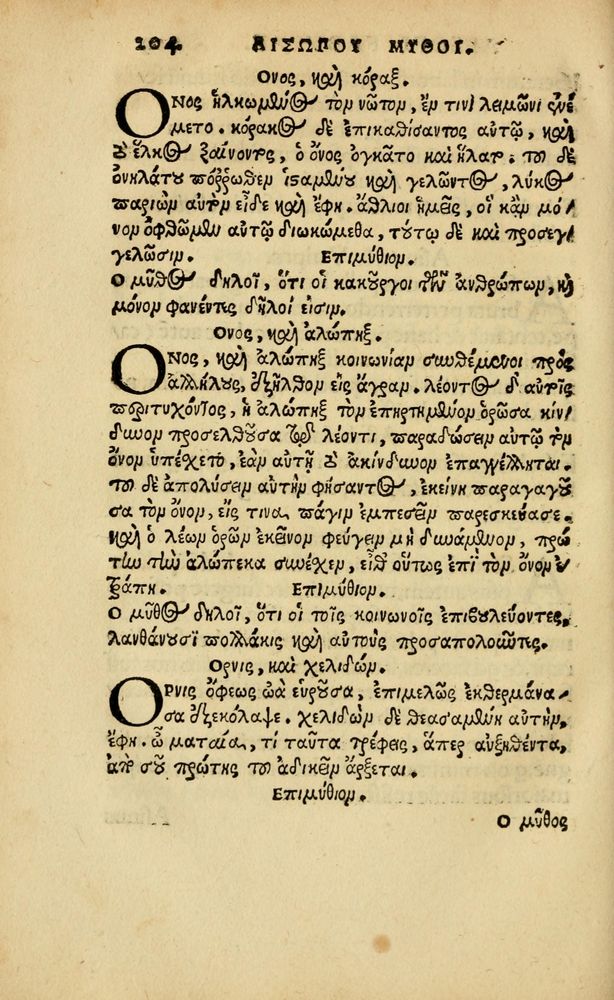 204 ΑΙΣΩΠΟΥ ΜΥΘΟΙ.
Ονος, καὶ κόραξ.
ΟΝος ἡλκωμένος τὸν νῶτον, ἔν τινι λειμῶνι ἐνέ
μετο. κόρακος δὲ ἐπικαθίσαντος αὐτῷ, καὶ
τὸ ἕλκος ξαίνοντος, ὁ ὄνος ὀγκᾶτο καὶ ἥλατο. τοῦ δὲ
ὀνηλάτου πόῤῥωθεν ἱσταμένου καὶ γελῶντος, λύκος
παριὼν αὐτὸν εἶδε καὶ ἔφη. ἄθλιοι ἡμεῖς, οἱ κἂν μό-
νον ὀφθῶμεν αὐτῷ διωκώμεθα, τούτῳ δὲ καὶ προσεγ-
γελῶσιν. Επιμύθιον.
Ο μῦθος δηλοῖ, ὅτι οἱ κακοῦργοι τῶν ἀνθρώπων, καὶ
μόνον φανέντες δῆλοί εἰσιν.
Ονος, καὶ ἀλώπηξ.
ΟΝος, καὶ ἀλώπηξ κοινωνίαν συνθέμενοι πρὸς
ἀλλήλους, ἐξῆλθον εἰς ἄγραν. λέοντος δ' αὐτοῖς
περιτυχόντος, ἡ ἀλώπηξ τὸν ἐπηρτημένον ὁρῶσα κίν-
δυνον προσελθοῦσα τῷ λέοντι, παραδώσειν αὐτῷ τὸν
ὄνον ὑπέχετο, ἐὰν αὐτῇ τὸ ἀκίνδυνον ἐπαγγέλληται.
τοῦ δὲ ἀπολύσειν αὐτὴν φήσαντος, ἐκείνη παραγαγοῦ
σα τὸν ὄνον, εἴς τινα πάγην ἐμπεσεῖν παρεσκεύασε.
καὶ ὁ λέων ὁρῶν ἐκεῖνον φεύγειν μὴ δυνάμενον, πρώ
την τὴν ἀλώπεκα συνέχεν, εἶθ' οὕτως ἐπὶ τὸν ὄνον ἐ-
τράπη. Επιμύθιον.
Ο μῦθος δηλοῖ, ὅτι οἱ τοῖς κοινωνοῖς ἐπιβουλεύοντες,
λανθάνουσι πολλάκις καὶ αὐτοὺς προσαπολοιῶντες.
Ορνις, καὶ χελιδών.
ΟΡνις ὄφεως ὠὰ εὑροῦσα, ἐπιμελῶς ἐκθερμάνα-
σα ἐξεκόλαψε. χελιδὼν δὲ θεασαμένη αὐτὴν,
ἔφη. ὦ ματαία, τί ταῦτα τρέφεις, ἅπερ αὐξηθέντα,
ἀπὸ σοῦ πρώτης τοῦ ἀδικεῖν ἄρξεται.
Επιμύθιον.
Ο μῦθος